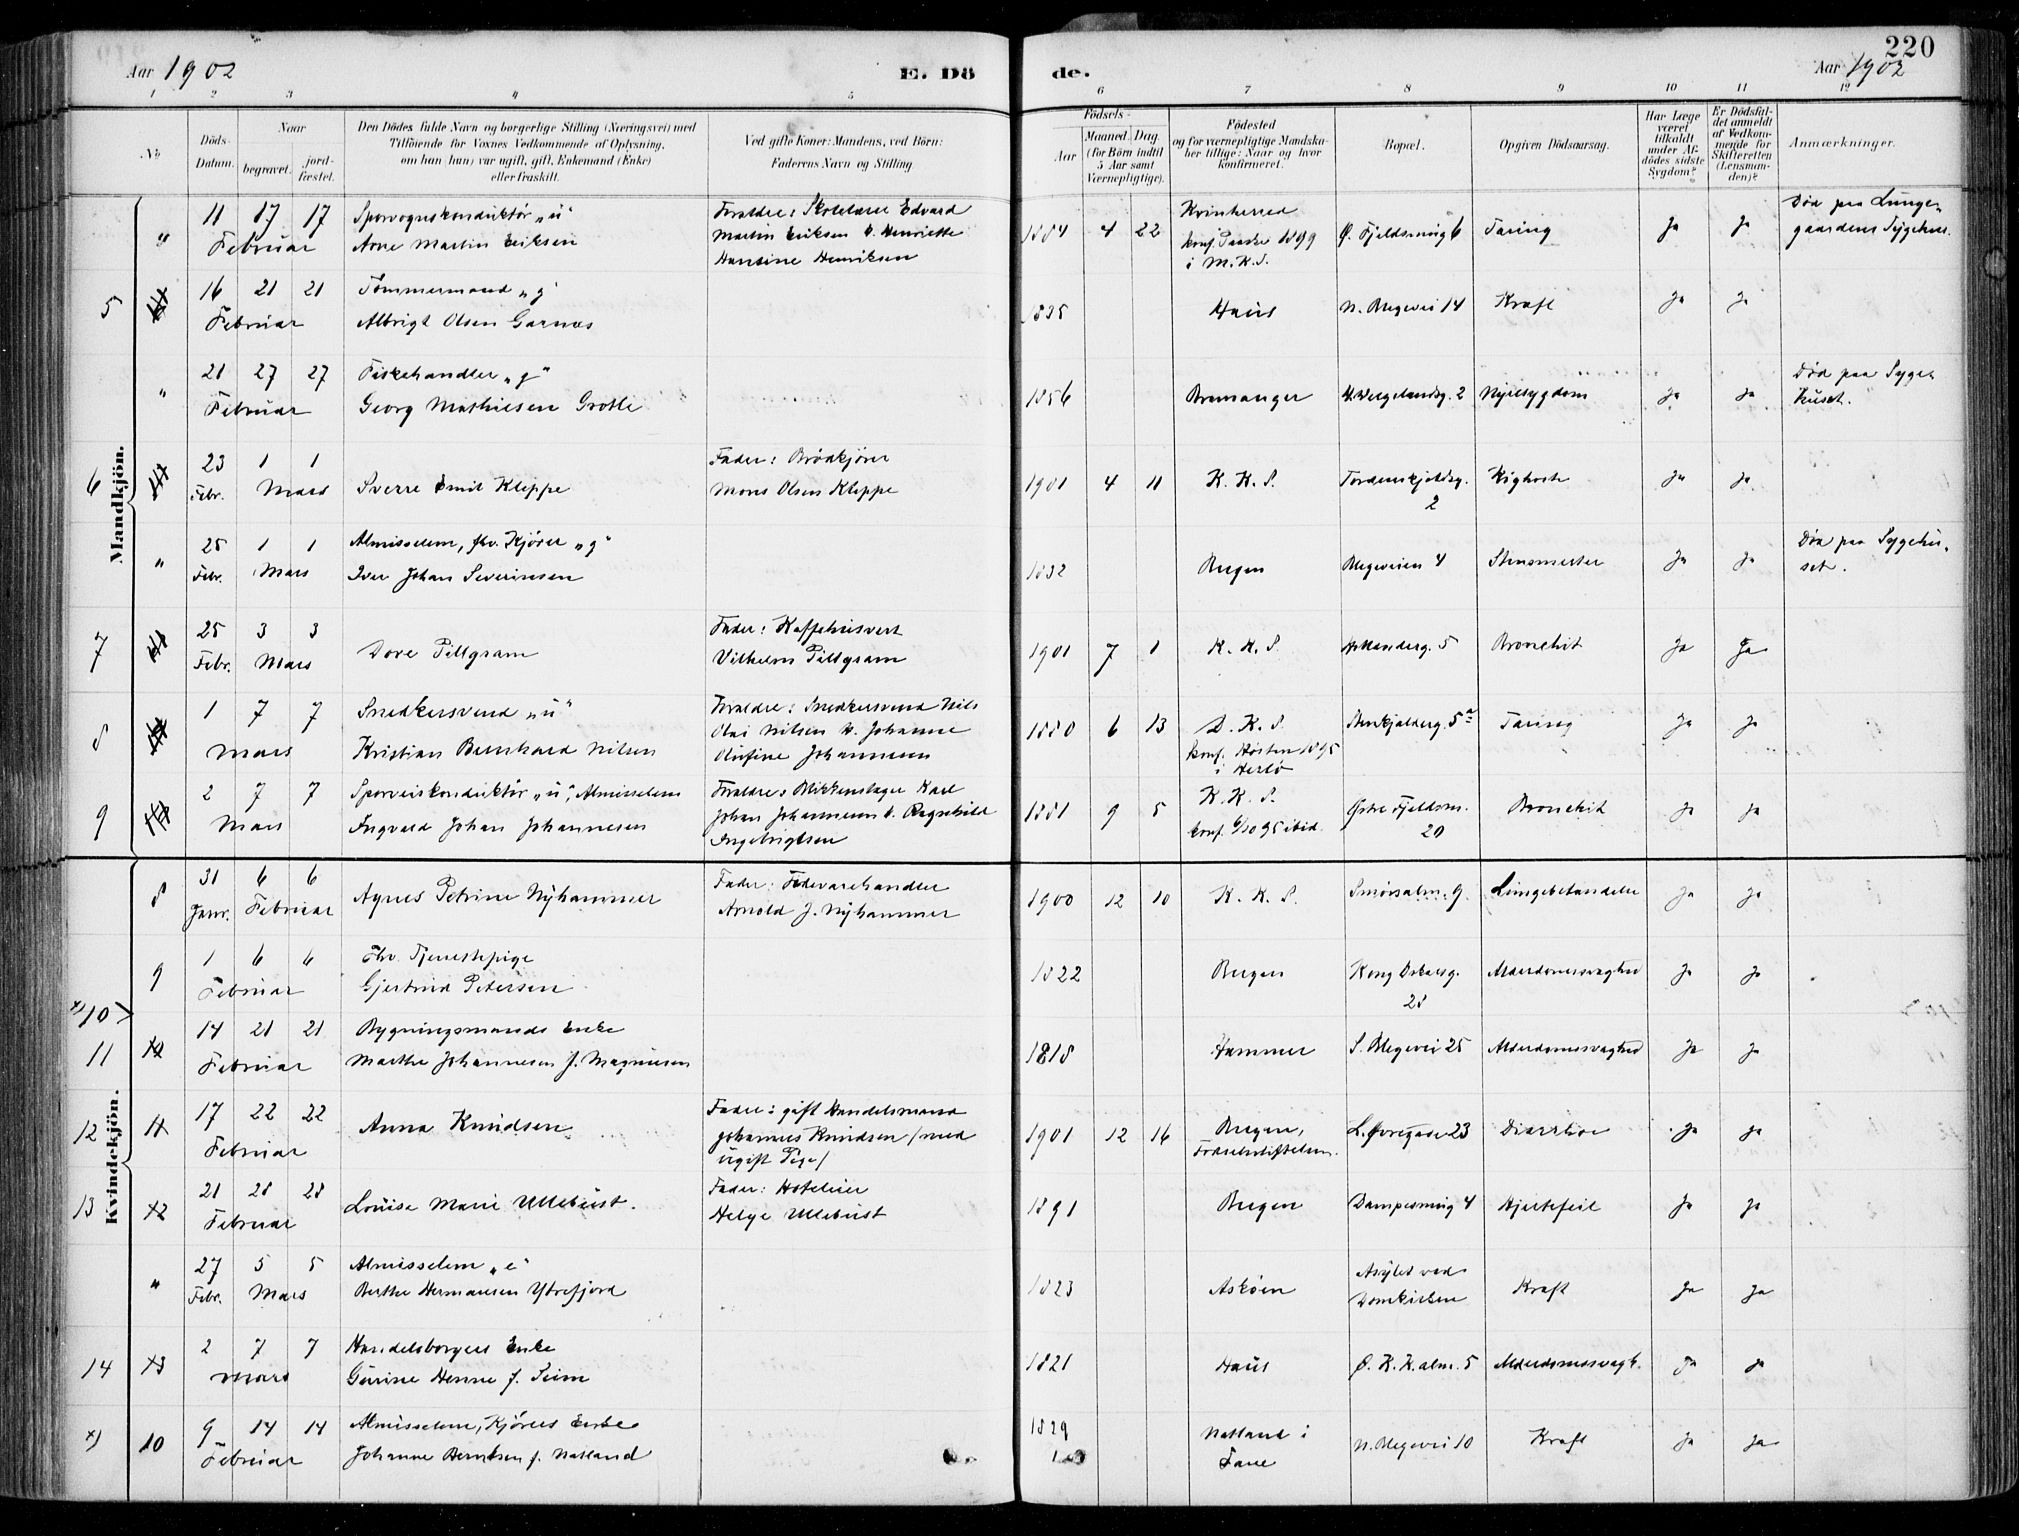 Aar 1902
E. Dö
de.
220
Aar 1902
1 2 3 4 5 6 7 8 9 10 11 12
No
Döds-Datum.
Naar
begravet.
jord-fæstet.
Den Dödes fulde Navn og borgerlige Stilling (Næringsvei) med
Tilföiende for Voxnes Vedkommende af Oplysning,
om han (hun) var ugift, gift, Enkemand (Enke)
eller fraskilt.
Ved gifte Koner: Mandens, ved Börn:
Faderens Navn og Stilling.
Födsels-
Aar
Maaned. Dag.
(for Börn indtil
5 Aar samt
Værnepligtige).
Födested
og for værnepligtige Mandska-
ber tillige: Naar og hvor
konfirmeret.
Bopæl.
Opgiven Dödsaarsag.
Har Læge
været
tilkaldt
under Af-
dödes sidste
Sygdom?
Er Dödsfal-
det anmeldt
af Vedkom-
mende for
Skifteretten
(Lensman-
den)?
Anmærkninger.
Mandkjön.
" 11 17 17 Februar
Sporvognskonduktör „u“
Arne Martin Eriksen
Forældre: Skolelærer Edvard
Martin Eriksen & Henriette
Hansine Henriksen
1884 4 22
Kvinherred
konf. Paaske 1899
i M.K.S.
Ø. Fjeldsmug 6 Tæring Ja Ja
Död paa Lunge-
gaardens Sygehus.
5 16 21 21 Februar
Tömmermand „g“
Albrigt Olsen Garnæs
1835 Haus N. Blegevei 14 Kræft Ja Ja
" 21 27 27 Februar
Fiskehandler „g“
Georg Mathiesen Grotle
1856 Bremanger H. Wergelandsg. 2 Nyresygdom Ja Ja
Död paa Syge-
huset.
6 23 Febr. 1 1 Mars
Sverre Emil Kleppe
Fader: Brödkjörer
Mons Olsen Kleppe
1901 4 11 K. K. S. Tordenskjoldsg. 2 Kighoste Ja Ja
" 25 Febr. 1 1 Mars
Almisselem, fhv. Kjörer „g“
Iver Johan Severinsen
1832 Bergen Blegeveien 4 Ja Ja
Död paa Sygehu-
set.
7 25 Febr. 3 3 Mars
Dore Pillgram
Fader: Kaffehusvert
Vilhelm Pillgram
1901 7 1 K. K. S. 5 Bronchit Ja Ja
8 1 7 7 Mars
Snedkersvend „u“
Kristian Bernhard Nilsen
Forældre: Snedkersvend Nils
Olai Nilsen & Johanne
Olufine Johannesen
1880 6 13
D. K. S.
konf. Hösten 1895
i Herlö
Stenkjælderg. 5a Tæring Ja Ja
9 2 7 7 Mars
Sporveiskonduktör „u“, Almisselem
Ingvald Johan Johannesen
Forældre: Blikkenslager Karl
Johan Johannesen & Ragnhild
Ingebrigtsen
1881 9 5
K. K. S.
konf. 6/10 95 ibid.
Östre Fjeldsm. 20 Bronchit Ja Ja
Kvindekjön.
8 31 Janr. 6 6 Februar
Agnes Petrine Nyhammer
Fader: Fedevarehandler
Arnold J. Nyhammer
1900 12 10 K. K. S. Smörsalm. 9 Lungebetændelse Ja Ja
9 1 6 6 Februar
Fhv. Tjenestepige
Gjertrud Petersen
1822 Bergen Kong Oskarsg. 28 Alderdomssvaghed Ja Ja
x) 10 >
11 14 21 21 Februar
Bygningsmands Enke
Marthe Johannesen f. Magnusen
1818 Hammer S. Blegevei 25 Alderdomssvaghed Ja Ja
12 17 22 22 Februar
Anna Knudsen
Fader: gift Handelsmand
Johannes Knudsen / med
ugift Pige /
1901 12 16
Bergen,
Födselsstiftelsen.
L. Övregade 23 Diarrhoe Ja Ja
13 21 28 28 Februar
Louise Marie Ullebust.
Fader: Hoteleier
Helge Ullebust
1891 Bergen Dampesmug 4 Hjertefeil Ja Ja
" 27 Febr. 5 5 Mars
Almisselem „e“
Berthe Hermansen Ytrefjord
1823 Asköen
Asylet ved
Domkirken
Kræft Ja Ja
14 2 7 7 Mars
Handelsborgers Enke
Gurine Henne f. Seim
1821 Haus Ø. K. K. alm. 5 Alderdomssvagh. Ja Ja
x) 10 9 14 14 Februar
Almisselem, Kjörers Enke
Johanne Berntsen f. Natland
1829
Natland i
Fane
N. Blegevei 10 Kræft Ja Ja